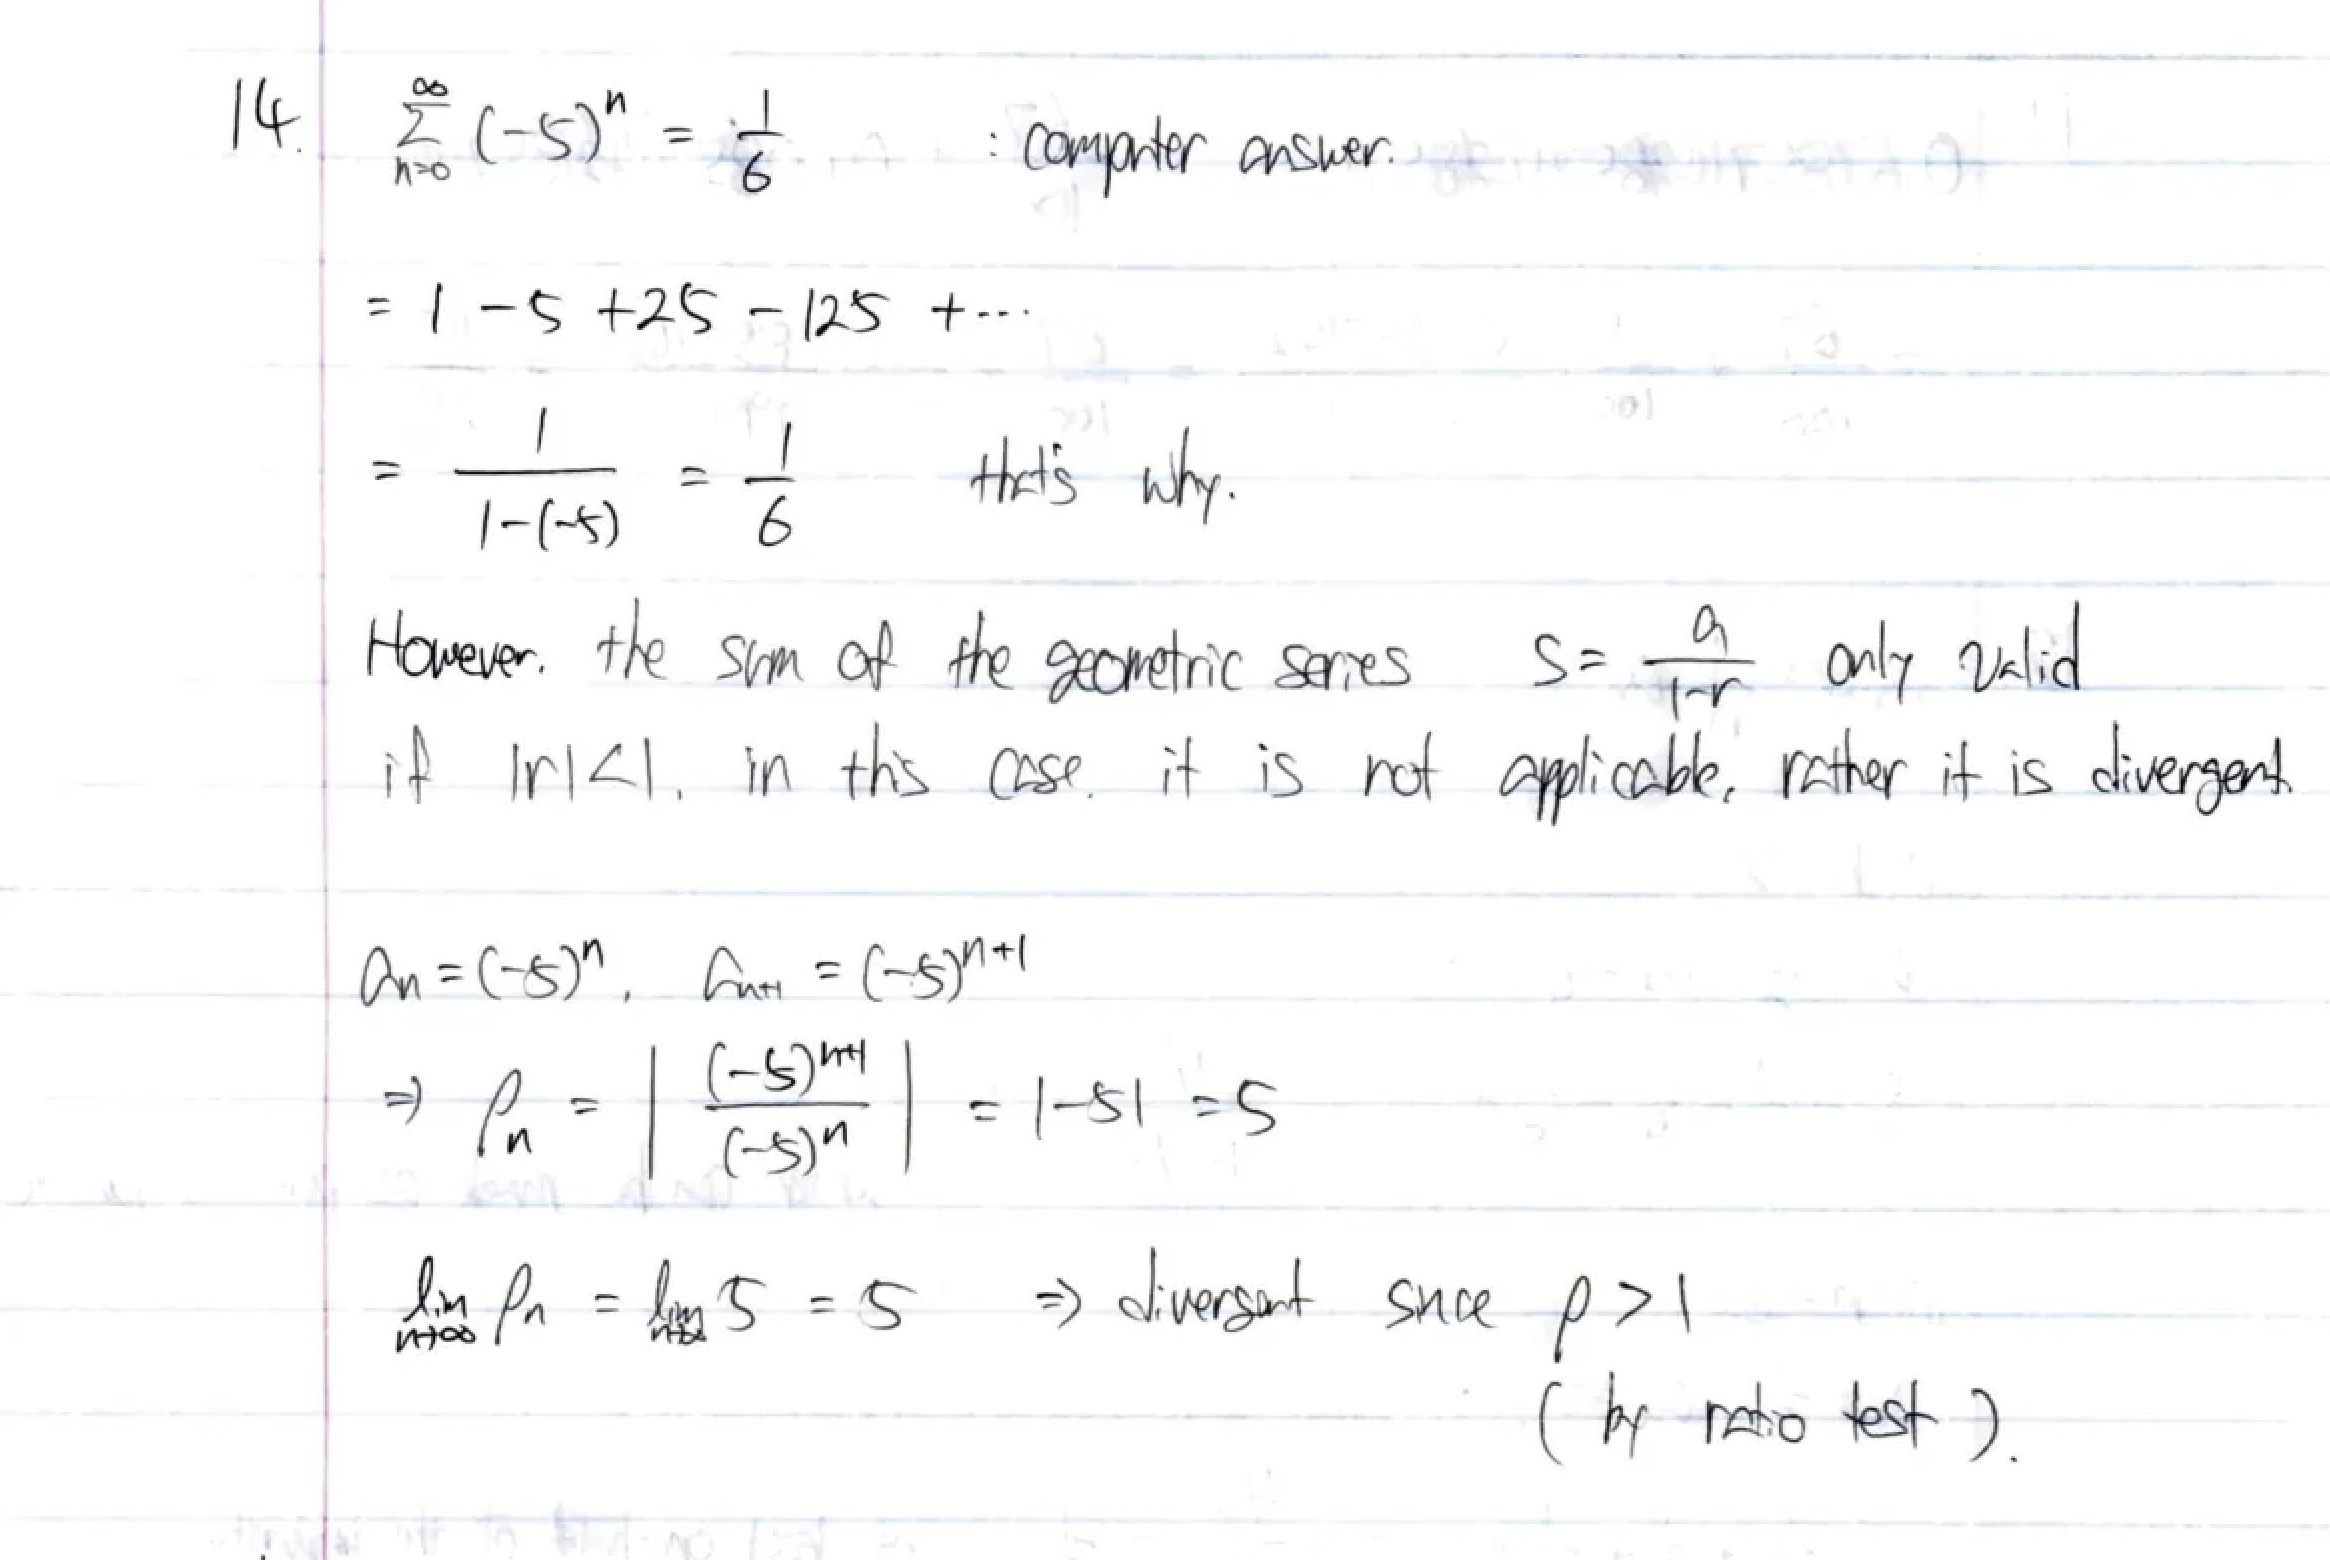 14. ∑_{n=0}^{∞} (-5)^n = 1/6 : computer answer.
= 1 - 5 + 25 - 125 + ...
= 1/(1-(-5)) = 1/6 that's why.
However, the sum of the geometric series S = a/(1-r) only valid
if |r|<1, in this case, it is not applicable, rather it is divergent
a_n = (-5)^n, a_{n+1} = (-5)^{n+1}
⇒ ρ_n = | (-5)^{n+1} / (-5)^n | = |-5| = 5
lim_{n→∞} ρ_n = lim_{n→∞} 5 = 5 ⇒ divergent since ρ > 1
(by ratio test).